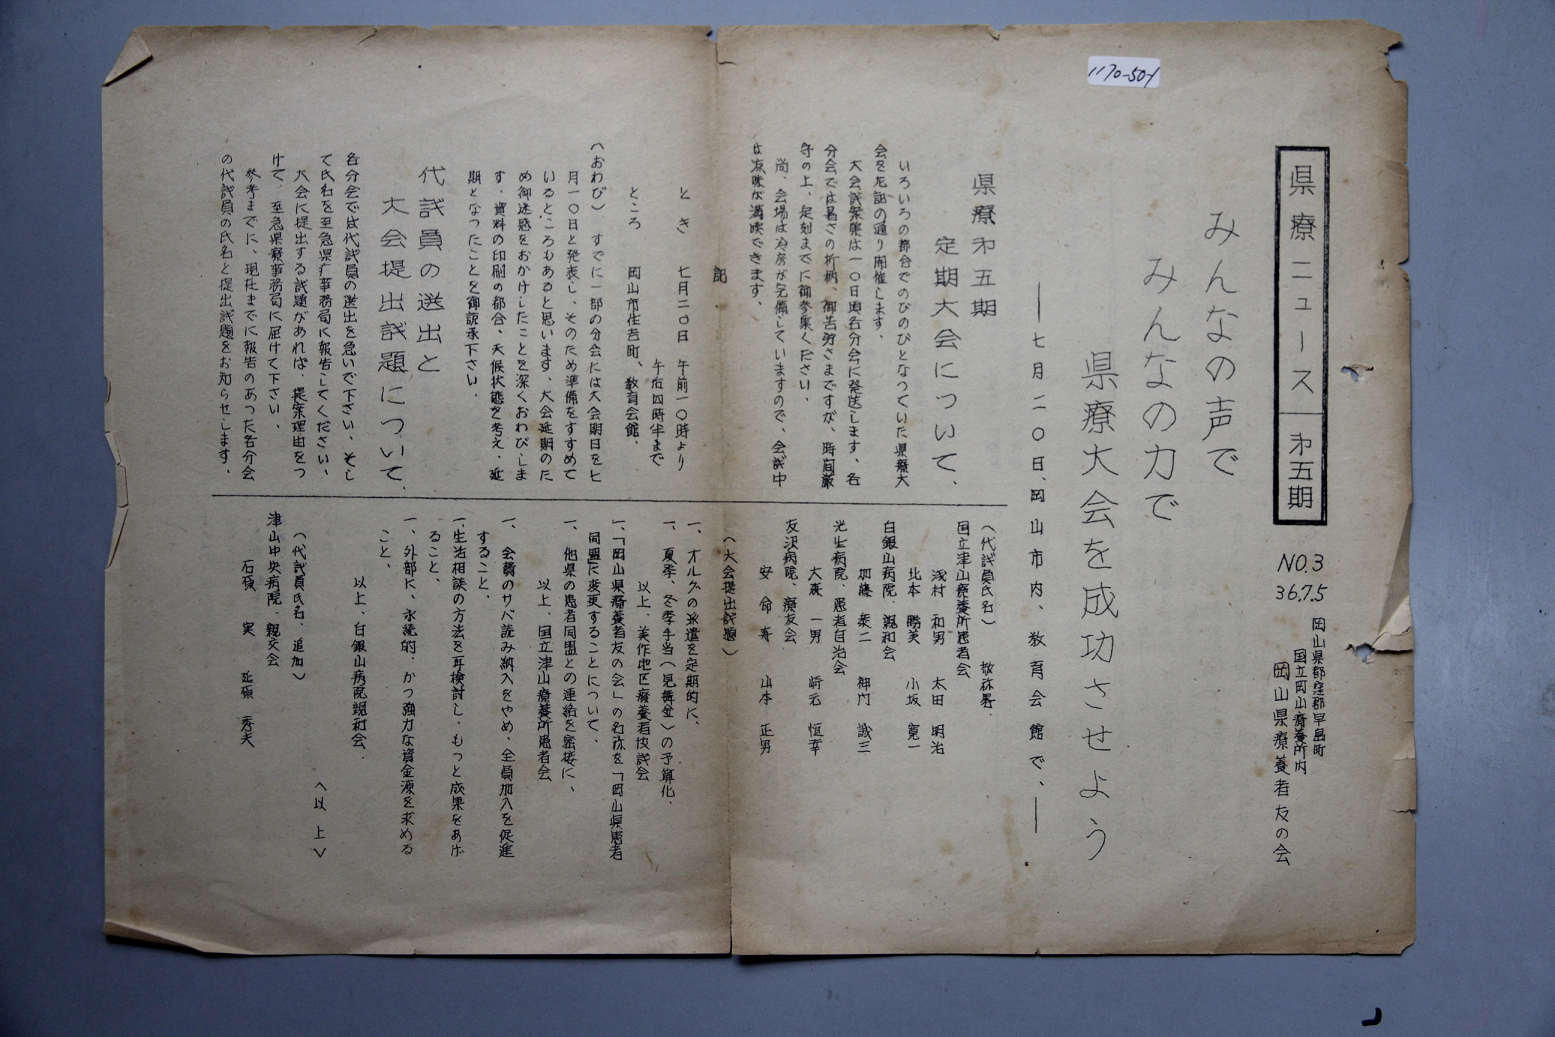 1170-50-1
県療ニュース 第五期
NO.3
36.7.5
岡山県都窪郡早島町
国立岡山療養所内
岡山県療養者友の会
みんなの声で
みんなの力で
県療大会を成功させよう
——七月二〇日、岡山市内、教育会館で、——
県療第五期
定期大会について、
いろいろの都合でのびのびとなっていた県療大
会を左記の通り開催します。
大会議案集は一〇日頃各分会に発送します、各
分会では暑さの折柄、御苦労さまですが、時間厳
守の上、定刻までに御参集ください、
尚、会場は冷房が完備していますので、会議中
は涼味が満喫できます。
記、
とき 七月二〇日 午前一〇時より
午后四時半まで
ところ 岡山市住吉町、教育会館、
(おわび) すでに一部の分会には大会期日を七
月一〇日と発表し、そのため準備をすすめて
いるところもあると思います、大会延期のた
め御迷惑をおかけしたことを深くおわびしま
す、資料の印刷の都合、天候状態を考え、延
期となったことを御諒承下さい、
代議員の送出と
大会提出議題について、
各分会では代議員の選出を急いで下さい、そし
て氏名を至急県疗事務局に報告してください、
大会に提出する議題があれば、提案理由をつ
けて、至急県療事務局に届けて下さい、
参考までに、現在までに報告のあった各分会
の代議員の氏名と提出議題をお知らせします、
(代議員氏名) 敬称畧、
国立津山療養所患者会
浅村 和男 太田 明治
北本 勝美 小坂 寛一
白銀山病院、親和会
加藤 泰二 神門 誠三
光生病院、患者自治会
大森 一男 崎元 恒幸
友沢病院、療友会
安命寿 山本 正男
(大会提出議題)
一、オルグの派遣を定期的に、
一、夏季、冬季手当(見舞金)の予算化、
以上、美作地区療養者協議会
一、「岡山県療養者友の会」の名称を「岡山県患者
同盟に変更することについて、
一、他県の患者同盟との連絡を密接に、
以上、国立津山療養所患者会、
一、会費のサバ読み納入をやめ、全員加入を促進
すること、
一、生活相談の方法を再検討し、もっと成果をあげ
ること、
一、外部に、永続的、かつ強力な資金源を求める
こと、
以上、白銀山病院親和会、
(以上)
(代議員氏名、追加)
津山中央病院、親交会
石積 実 延原 秀夫